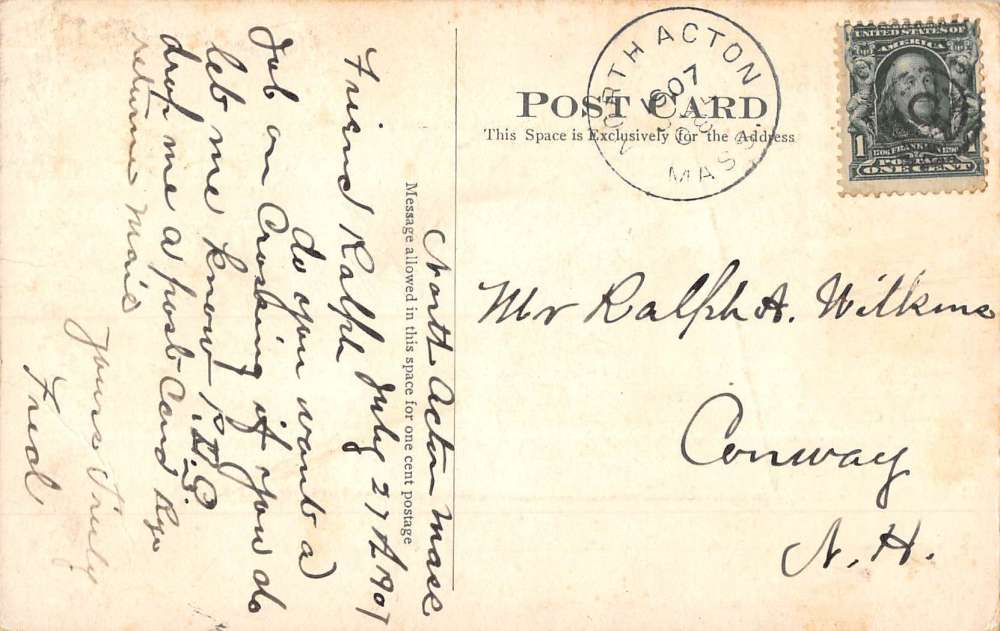 POST CARD
This Space is Exclusively for the Address
NORTH ACTON
1907
MASS.
UNITED STATES OF
AMERICA
1 1
POSTAGE
ONE CENT
Message allowed in this space for one cent postage
North Acton Mass
July 27th 1907
Friend Ralph
do you want a
Job on Crossing if you do
let me know P.D.Q.
drop me a post Card by
return mail
Yours Truly
Fred
Mr Ralph A. Wilkins
Conway
N. H.